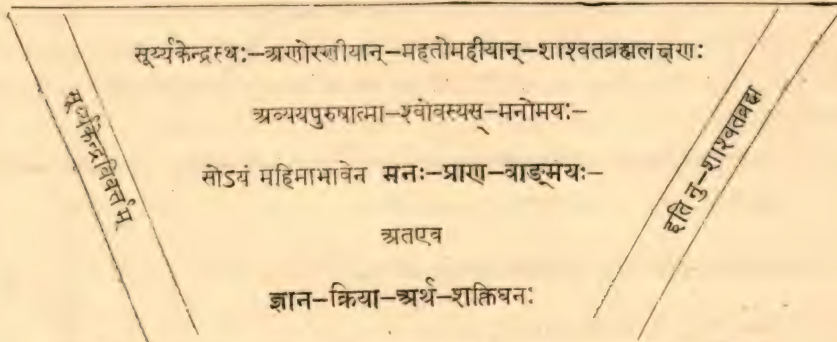 सूर्य्यकेन्द्रस्थः–अणोरणीयान्–महतोमहीयान्–शाश्वतब्रह्मलक्षणः
अव्ययपुरुषात्मा–श्वोवस्यस्–मनोमयः–
सोऽयं महिमाभावेन मनः–प्राण–वाङ्मयः–
अतएव
ज्ञान–क्रिया–अर्थ–शक्तिघनः
सूर्य्यकेन्द्रविवर्त्तम्
इति नु–शाश्वतब्रह्म